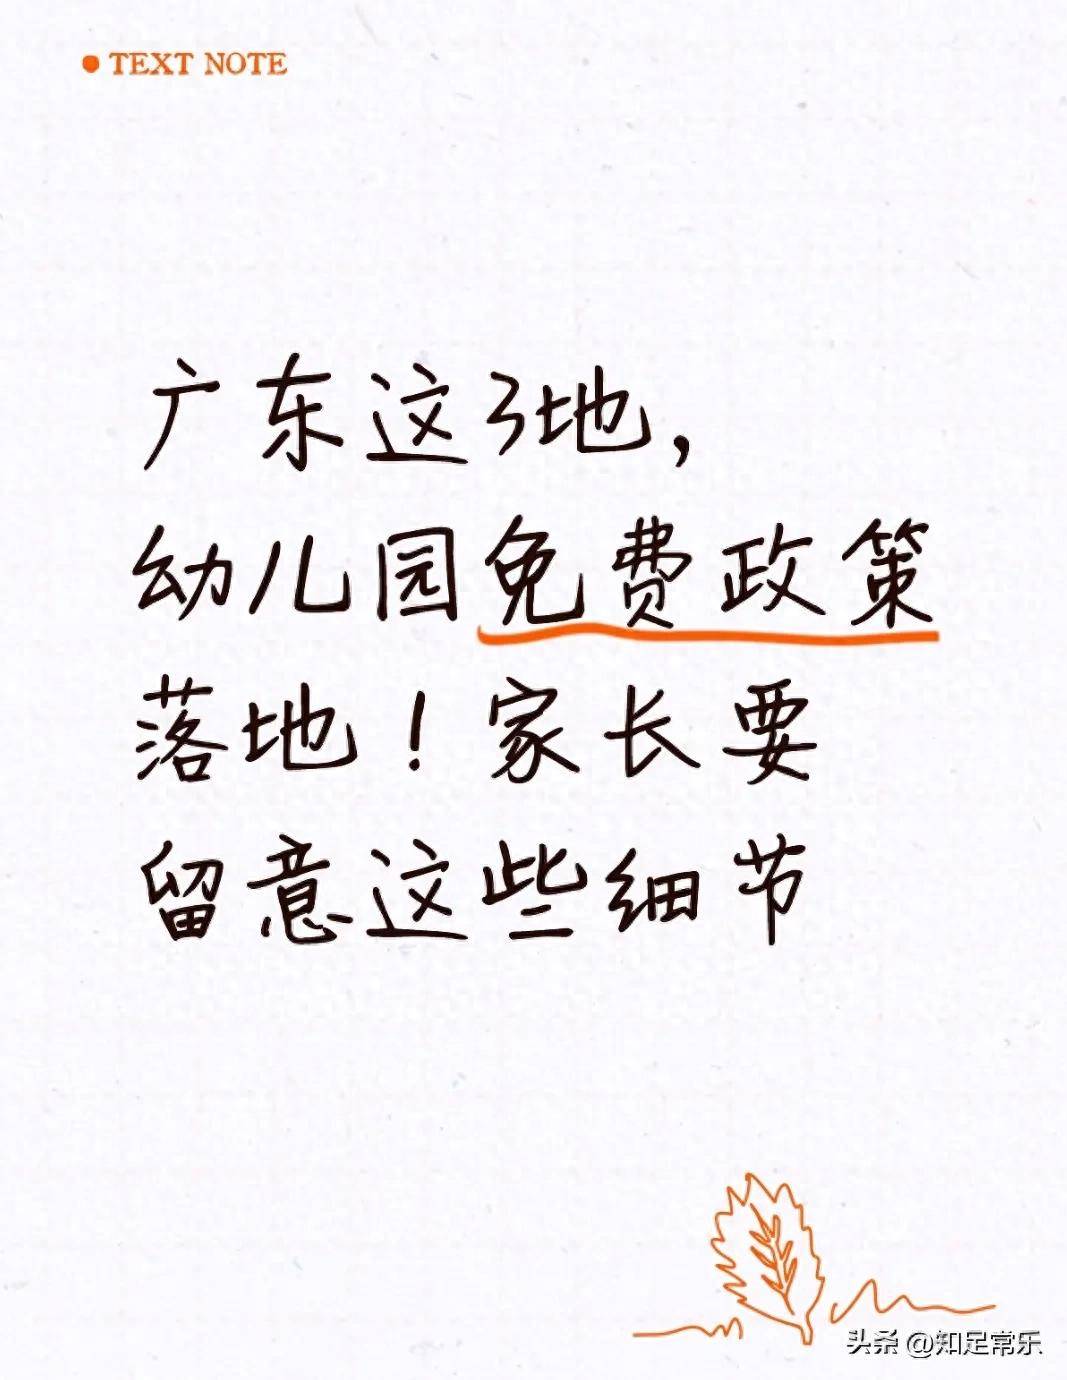 TEXT NOTE
广东这3地，
幼儿园免费政策
落地！家长要
留意这些细节
头条 @知足常乐